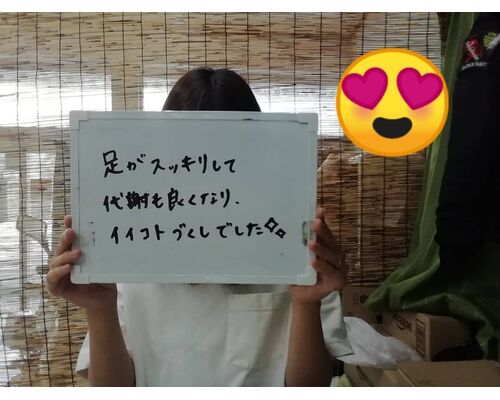 足がスッキリして
代謝も良くなり、
イイコトづくしでした